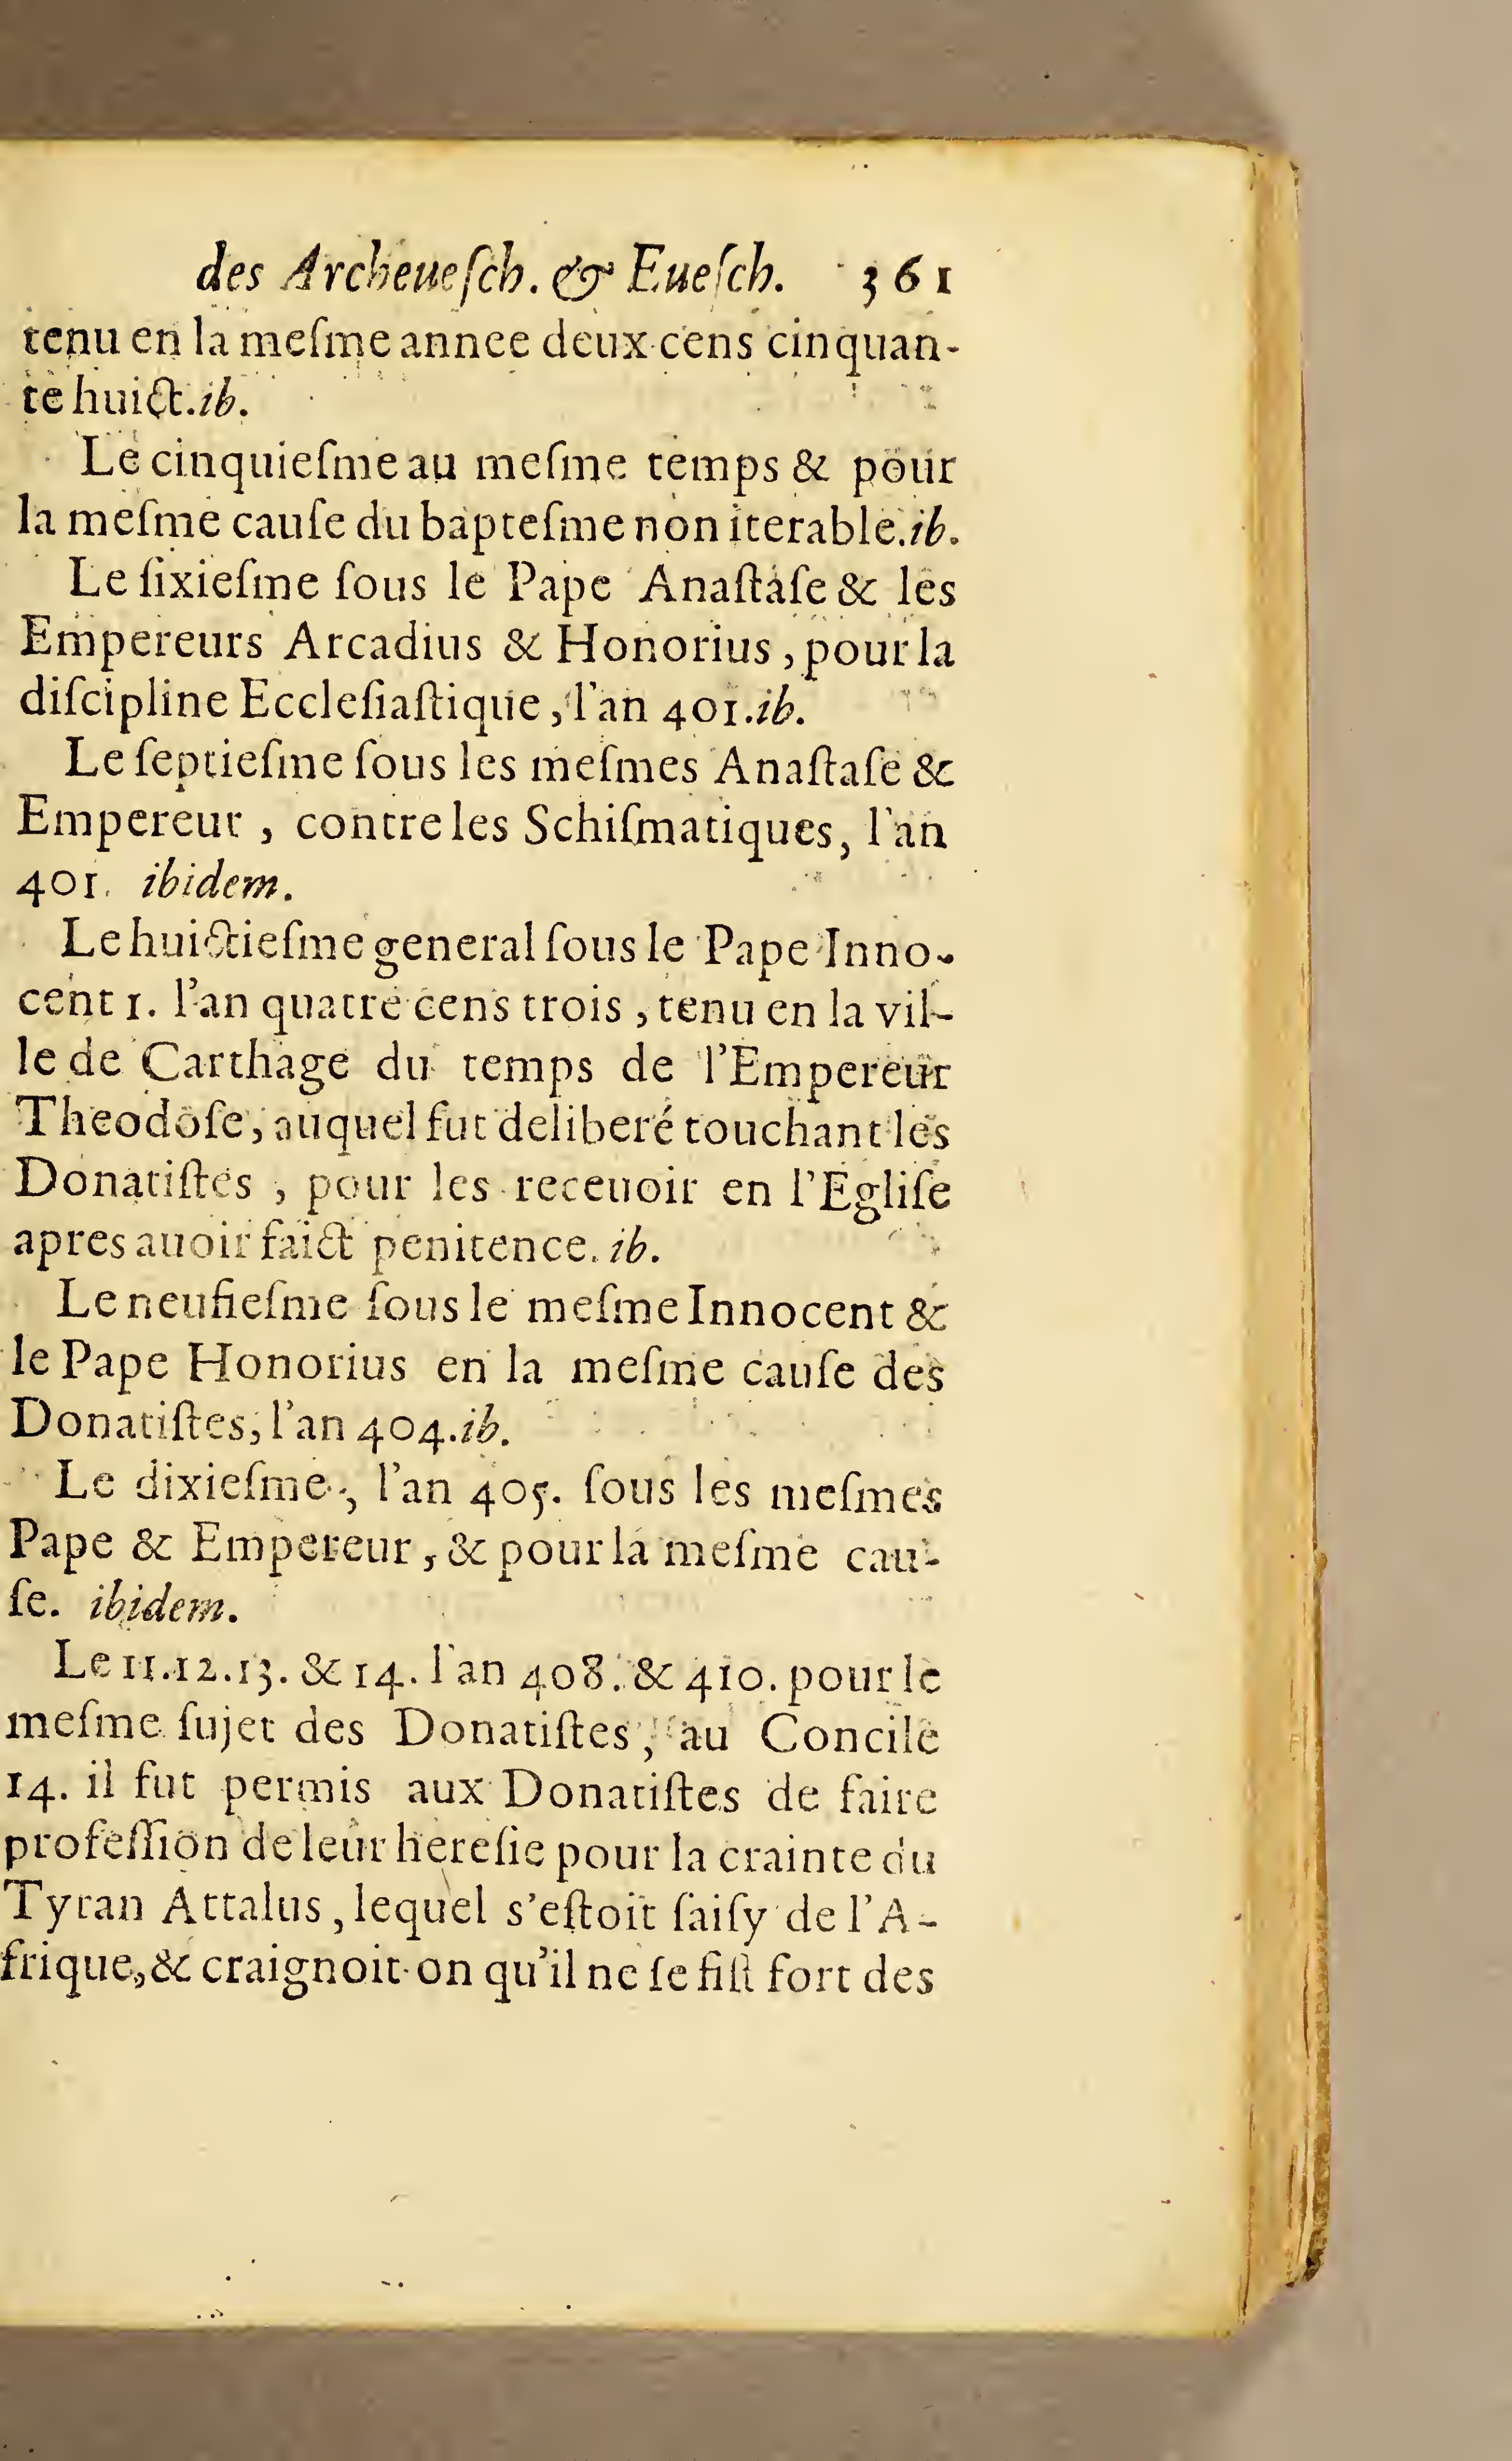 des Archeueſch. & Eueſch. 361
tenu en la meſme annee deux cens cinquan-
te huict. ib.
Le cinquieſme au meſme temps & pour
la meſme cauſe du bapteſme non iterable. ib.
Le ſixieſme ſous le Pape Anaſtaſe & les
Empereurs Arcadius & Honorius, pour la
diſcipline Eccleſiaſtique, l'an 401. ib.
Le ſeptieſme ſous les meſmes Anaſtaſe &
Empereur, contre les Schiſmatiques, l'an
401. ibidem.
Le huictieſme general ſous le Pape Inno-
cent 1. l'an quatre cens trois, tenu en la vil-
le de Carthage du temps de l'Empereur
Theodoſe, auquel fut deliberé touchant les
Donatiſtes, pour les receuoir en l'Egliſe
apres auoir faict penitence. ib.
Le neufieſme ſous le meſme Innocent &
le Pape Honorius en la meſme cauſe des
Donatiſtes, l'an 404. ib.
Le dixieſme, l'an 405. ſous les meſmes
Pape & Empereur, & pour la meſme cau-
ſe. ibidem.
Le 11. 12. 13. & 14. l'an 408. & 410. pour le
meſme ſujet des Donatiſtes, au Concile
14. il fut permis aux Donatiſtes de faire
profeſſion de leur hereſie pour la crainte du
Tyran Attalus, lequel s'eſtoit ſaiſy de l'A-
frique, & craignoit-on qu'il ne ſe fiſt fort des